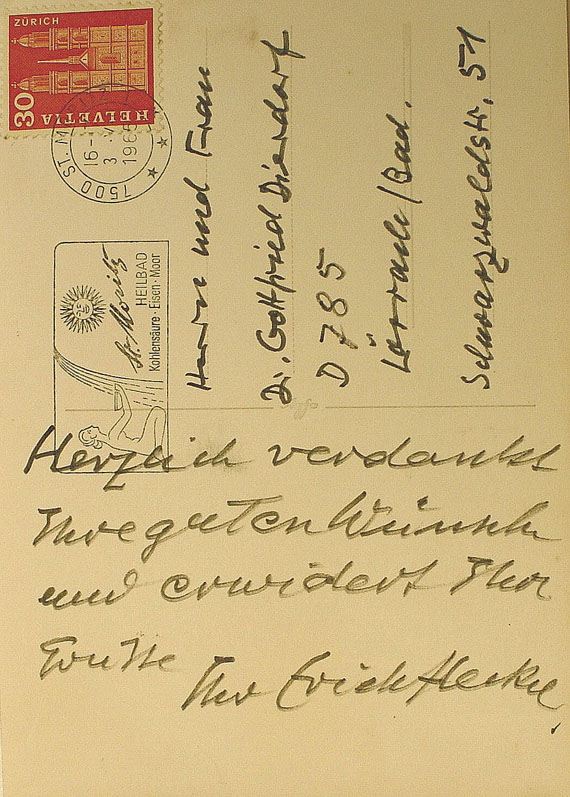 ZÜRICH
30
HELVETIA
7500 ST. M
16-
3. V
1965
St. Moritz
HEILBAD
Kohlensäure · Eisen · Moor
Herrn und Frau
Dr. Gottfried Dierdorf
D 785
Lörrach/Bad.
Schwarzwaldstr. 51
Herzlich verdankt
Ihre guten Wünsche
und erwidert Ihre
Grüsse
Ihr Erich Heckel.